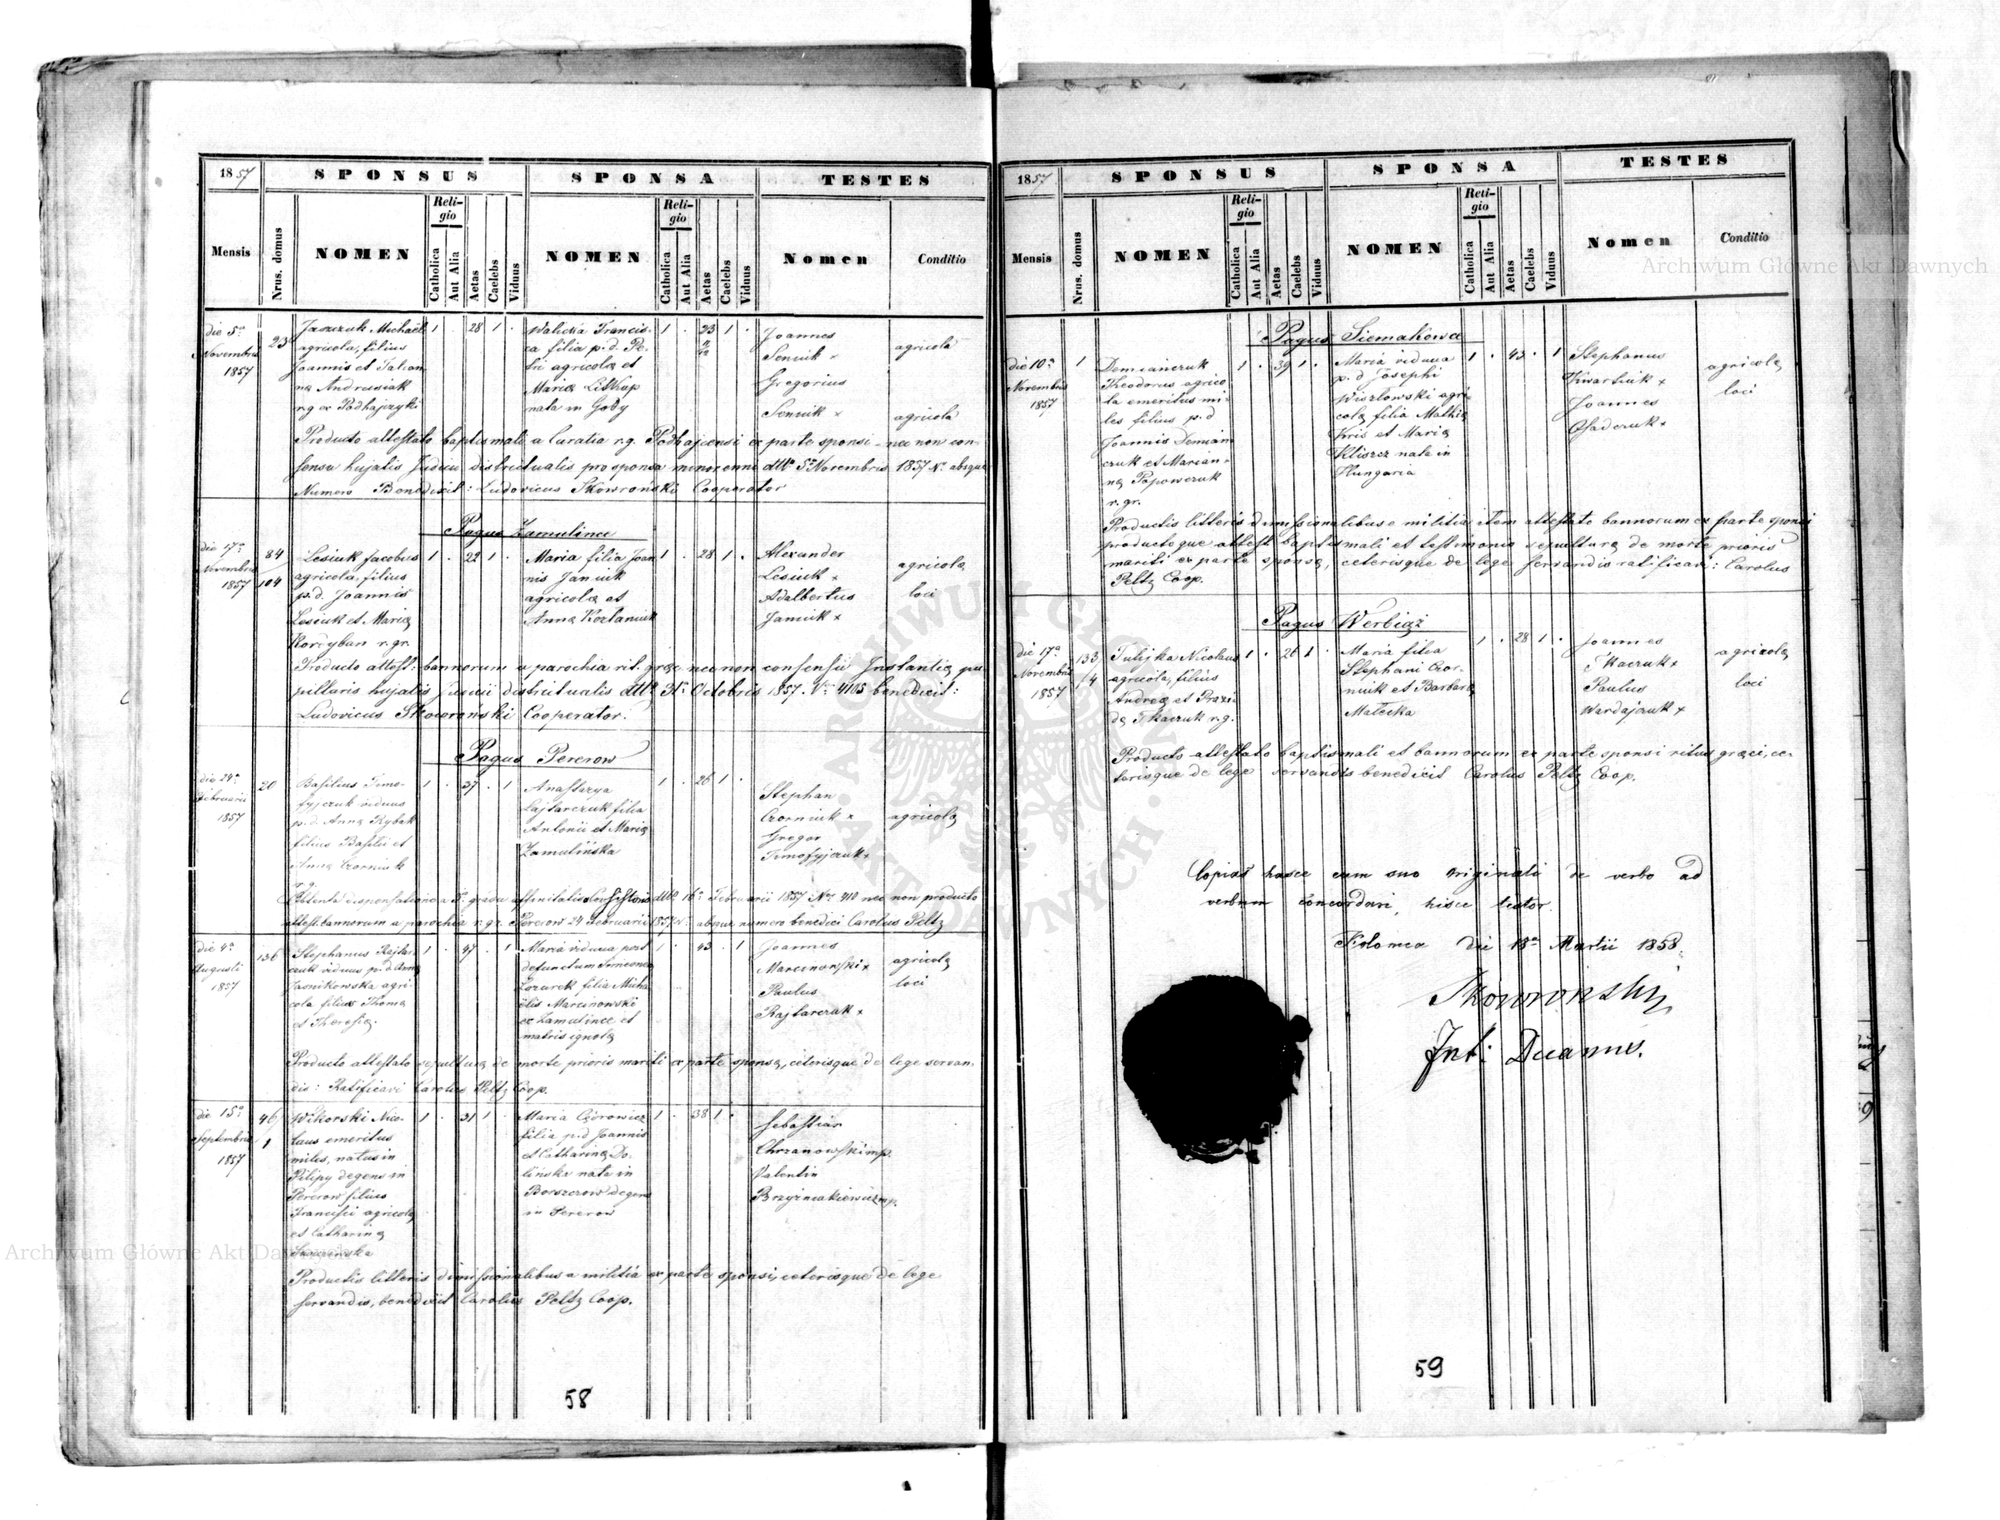 1857
SPONSUS
SPONSA
TESTES
Mensis
Nrus. domus
NOMEN
Religio
Catholica
Aut Alia
Aetas
Caelebs
Viduus
NOMEN
Religio
Catholica
Aut Alia
Aetas
Caelebs
Viduus
Nomen
Conditio
die 5ª
Novembris
1857
23
Michael
agricola, filius
Joannis et
na Andrusiak
r.g. ex Podhajczyki
1 . 28 1 .
Walicka Francis-
ca filia p.d. Pe-
tri agricolæ et
Mariæ
nata in
1 . 23 1 .
Joannes
Semik ×
Gregorius
Semik ×
agricola
agricola
Producto attestato baptismali a Curatia r.g. Podhajcensi ex parte sponsi nec non con-
sensu hujatis Judicii districtualis pro sponsa minorenni dtto 5ª Novembris 1857 Nº absque
Numero Benedixit: Ludovicus Skowroński Cooperator
Pagus Zamulince
die 17ª
Novembris
1857
84
104
Lesiuk Jacobus
agricola, filius
p.d. Joannis
Lesiuk et Mariæ
r.gr.
1 . 22 1 .
Maria filia Joan
nis Janiuk
agricolæ et
Anna Kozlaniuk
1 . 28 1 .
Alexander
Lesiuk ×
Adalbertus
Janiuk ×
agricolæ
loci
Producto attest: bannorum a parochia rit. græc. nec non consensu Instantiæ pu-
pillaris hujatis Judicii districtualis dtto 31. Octobris 1857. Nº 4105 benedixit:
Ludovicus Skowroński Cooperator.
Pagus Pererow
die 24ª
Februarii
1857
20
Basilius Timo-
fyjczuk viduus
p.d. Anna Rybak
filius Basilii et
Anna Czorniuk
r.g.
1 . 37 .
Anastazya
Lajtarczuk filia
Antonii et Mariæ
Zamulińska
1 . 26 1 .
Stephan
Czorniuk ×
Gregor
Timofyjczuk ×
agricolæ
Obtenta dispensatione a gradu affinitatis Consistorii dtto 16ª Februarii 1857 Nº 410 nec non producto
attest. bannorum a parochia r.gr. Pererow 24 Februarii 1857 Nº absque numero benedixi Carolus Peltz
die 4ª
Augusti
1857
136
Stephanus Rajtar-
czuk viduus p.d. Anna
Jasnikowska agri-
cola filius Thomæ
et Theresiæ.
1 . 47 . 1
Maria vidua post
defunctum Simeonem
Lozurek, filia Micha
elis Marcinowski
ex Zamulince et
matris ignotæ
1 . 43 . 1
Joannes
Marcinowski ×
Paulus
Rajtarczuk ×
agricolæ
loci
Producto attestato sepulturæ de morte prioris mariti ex parte sponsæ, ceterisque de lege servan-
dis: Ratificavi Carolus Peltz Coop.
die 15ª
Septembris
1857
46
1
Wikorski Nico-
laus emeritus
miles, natus in
Pilipy degens in
Pererow filius
Francisci agricolæ
et Catharinæ
1 . 31 1 .
Maria
filia p.d Joannis
et Catharinæ Do-
lińska nata in
Borszczow degens
in Pererow
1 . 38 1 .
Sebastian
Chrzanowski mp.
Valentin
mp.
Productis litteris dimissionalibus a militia ex parte sponsi, ceterisque de lege
servandis, benedixit Carolus Peltz Coop.
58
1857
SPONSUS
SPONSA
TESTES
Mensis
Nrus. domus
NOMEN
Religio
Catholica
Aut Alia
Aetas
Caelebs
Viduus
NOMEN
Religio
Catholica
Aut Alia
Aetas
Caelebs
Viduus
Nomen
Conditio
Pagus Siemakowce
die 10ª
Novembris
1857
1
Demianczuk
Theodorus agrico
la emeritus mi-
les filius p.d
Joannis Demian
czuk et Marian-
næ Popowczuk
r.gr.
1 . 39 1 .
Maria vidua
p.d Josephi
Wiszlowski agri-
colæ filia Mathiæ
Kris et Mariæ
Kliszcz nata in
Hungaria
1 . 43 . 1
Stephanus
Kwartiuk ×
Joannes
Osadczuk ×
agricolæ
loci
Productis litteris dimissionalibus e militia item attestato bannorum ex parte sponsi
productoque attest. baptismali et testimonio sepulturæ de morte prioris
mariti ex parte sponsæ, ceterisque de lege servandis ratificavi: Carolus
Peltz Coop.
Pagus Werbiąż
die 17ª
Novembris
1857
133
14
Tulijka Nicolaus
agricola, filius
Andreæ et Praxi-
dæ Tkaczuk r.g.
1 . 26 1 .
Maria filia
Stephani Czor-
niuk et Barbaræ
Malecka
1 . 28 1 .
Joannes
Tkaczuk ×
Paulus
Wardajczuk ×
agricolæ
loci
Producto attestato baptismali et bannorum ex parte sponsi ritus græci, ce-
terisque de lege servandis benedixit Carolus Peltz Coop.
Copias hasce cum suo originali de verbo ad
verbum concordari, hisce testor.
Kolomea die 18ª Martii 1858.
Skowroński
Int: Decanus.
59
Archiwum Główne Akt Dawnych
Archiwum Główne Akt Dawnych
ARCHIWUM GŁÓWNE AKT DAWNYCH